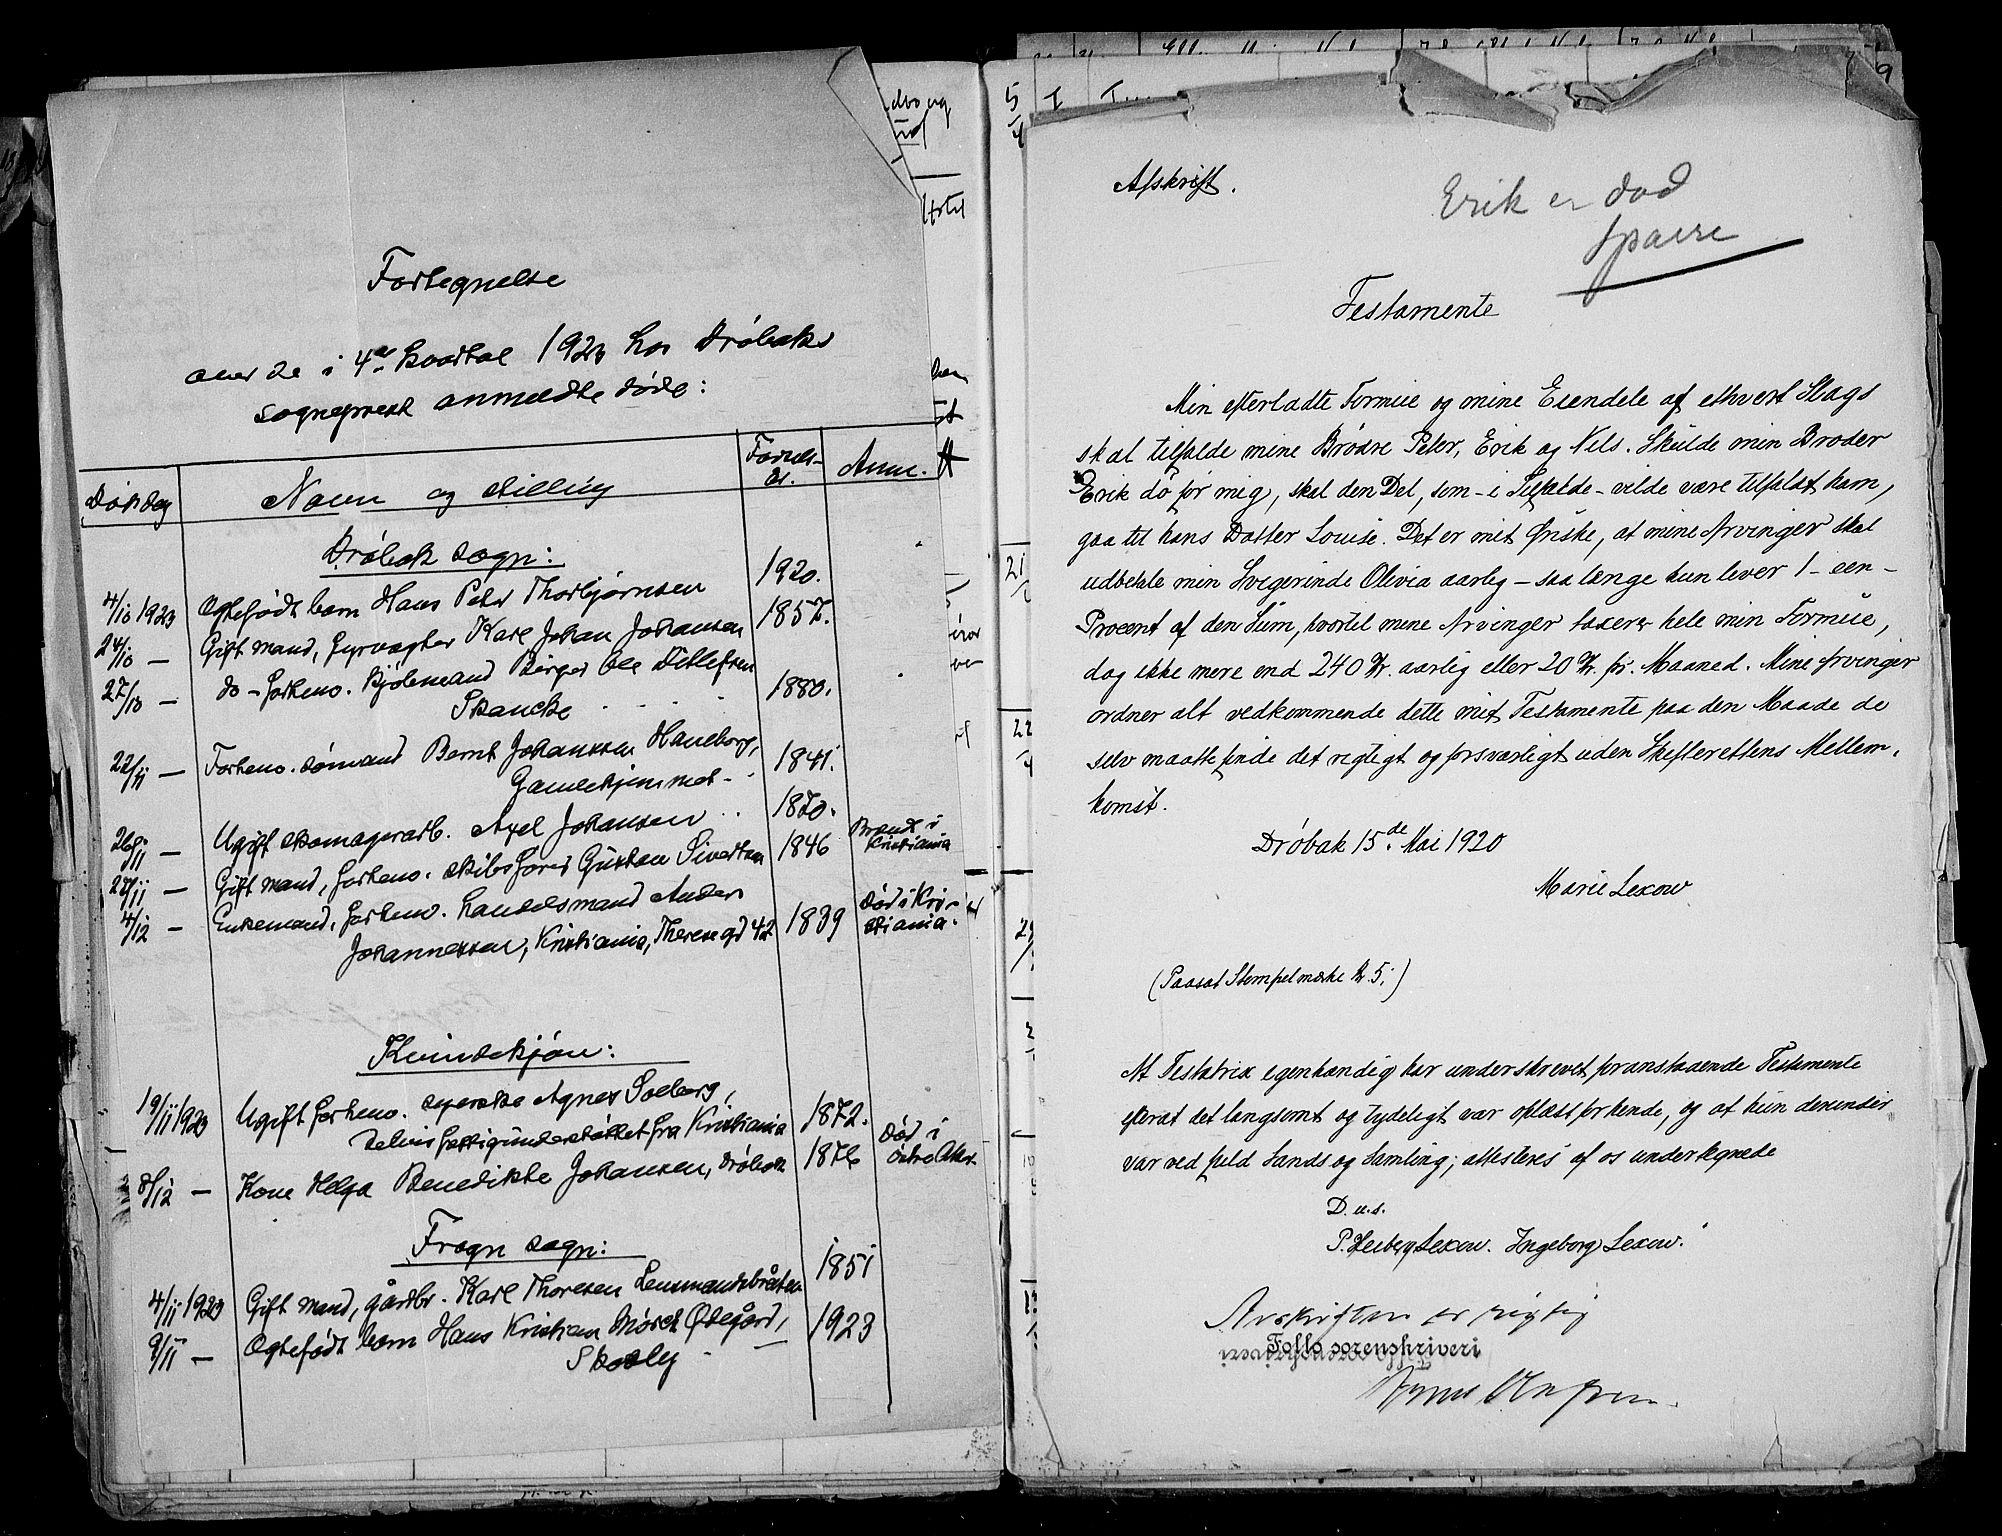 Fortegnelse
over de i 4de kvartal 1923 hos Drøbaks
sogneprest anmeldte døde:
Dødsdag Navn og stilling Fødsels-
år. Anm.
Drøbak sogn:
4/10 1923 Ogtefødt barn Hans Peter Thorbjørnsen 1920.
24/10 — Gift mand, fyrvogter Karl Johan Johansen 1857.
27/10 — do - forhenv. Bjelemand Birger Ole Ditlefsen
Skancke 1880.
22/11 — Forhenv. sømand Bernt Johanssen Haneborg,
Gamlehjemmet 1841.
26/11 — Ugift skomagerarb. Axel Johansen 1870. Brændt i
Kristiania
27/11 — Gift mand, forhenv. skibsfører Gustav Sivertsen 1846
4/12 — Enkemand, forhenv. handelsmand Anders
Johannessen, Kristiania, Therese gd 42 1839 Død i Kri-
stiania.
Kvindekjøn:
19/11 1923 Ugift forhenv. syerske Agnes Solberg,
delvis fattigunderstøttet fra Kristiania 1872. Død i
8/12 — Kone Helga Benedikte Johansen, Drøbak 1876 Østre Aker.
Frogn sogn:
4/11 1923 Gift mand, gårdbr. Karl Thoresen Lensmandsbråten 1851
9/11 — Ogtefødt barn Hans Kristian Mørch Ødegård,
Skorley 1923
Afskrift.
Erik er død
Sparre
Testamente
Min efterladte Formue og mine Eiendele af ethvert Slags
skal tilfalde mine Brødre Peter, Erik og Nils. Skulde min Broder
Erik dø før mig, skal den Del, som - i Tilfælde - vilde være tilfaldt ham,
gaa til hans Datter Louise. Det er mit Ønske, at mine Arvinger skal
udbetale min Svigerinde Olivia aarlig - saa længe hun lever 1 - een -
Procent af den Sum, hvortil mine Arvinger taxerer hele min Formue,
dog ikke mere end 240 Kr. aarlig eller 20 Kr. pr. Maaned. Mine Arvinger
ordner alt vedkommende dette mit Testamente paa den Maade de
selv maatte finde det rigtigt og forsvarligt uden Skifterettens Mellem-
komst.
Drøbak 15de Mai 1920
Marie Lexow
(Paasat Stempelmærke Kr. 5,-)
At Testatrix egenhændig har underskrevet foranstaaende Testamente
efterat det langsomt og tydeligt var oplæst for hende, og at hun derunder
var ved fuld Sands og Samling, attesteres af os undertegnede
D. u. s.
P. Heiberg Lexow. Ingeborg Lexow.
Avskriften er rigtig
Follo sorenskriveri